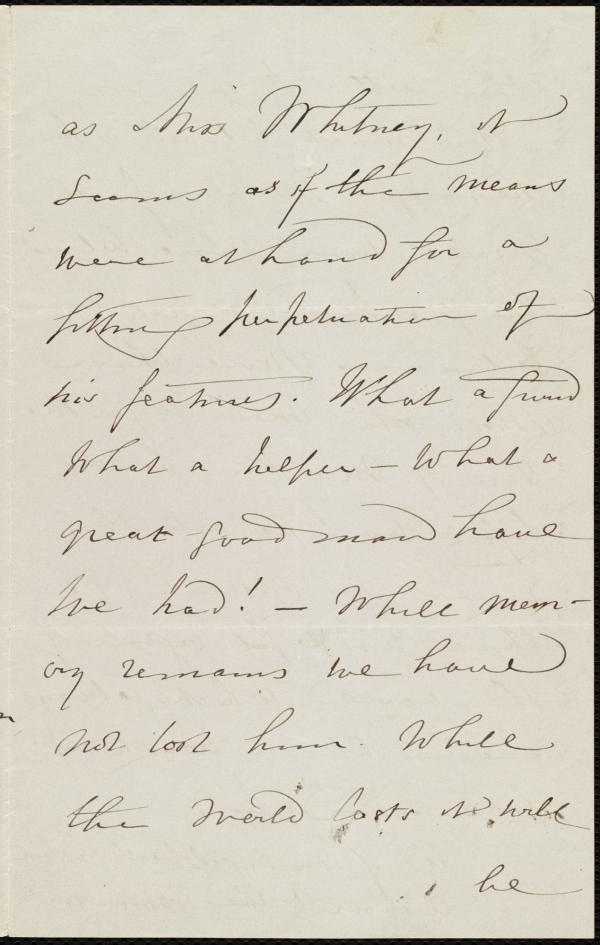 as Miss Whitney, it
seems as if the means
were at hand for a
fitting perpetuation of
his features. What a friend
What a helper – What a
great good man have
we had! – While mem-
ory remains we have
not lost him. While
the world lasts it will
be